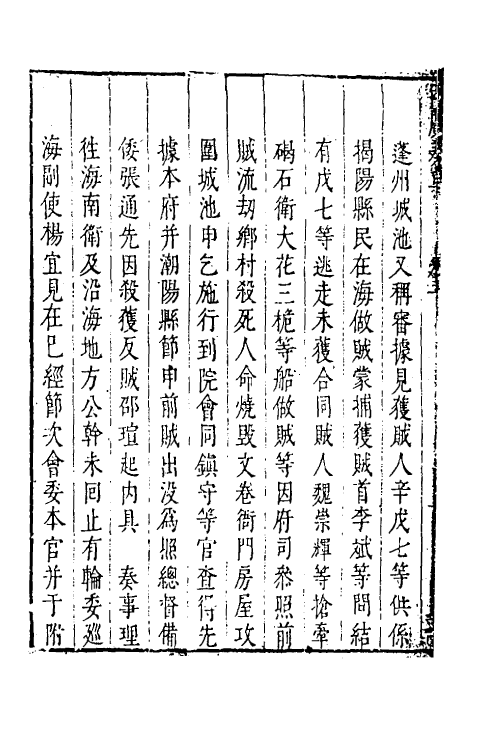 蓬州城池又稱審據見獲賊人辛戊七等供係
揭陽縣民在海做賊蒙捕獲賊首李斌等問結
有戊七等逃走未獲合同賊人魏崇輝等搶牽
碣石衛大花三桅等船做賊等因府司叅照前
賊流刧鄉村殺死人命燒毀文卷衙門房屋攻
圍城池申乞施行到院會同鎮守等官查得先
據本府并潮陽縣節申前賊出没為照總督備
倭張通先因殺獲反賊邵瑄起内具　奏事理
徃海南衛及沿海地方公幹未回止有輪委廵
海副使楊宜見在已經節次會委本官并于附